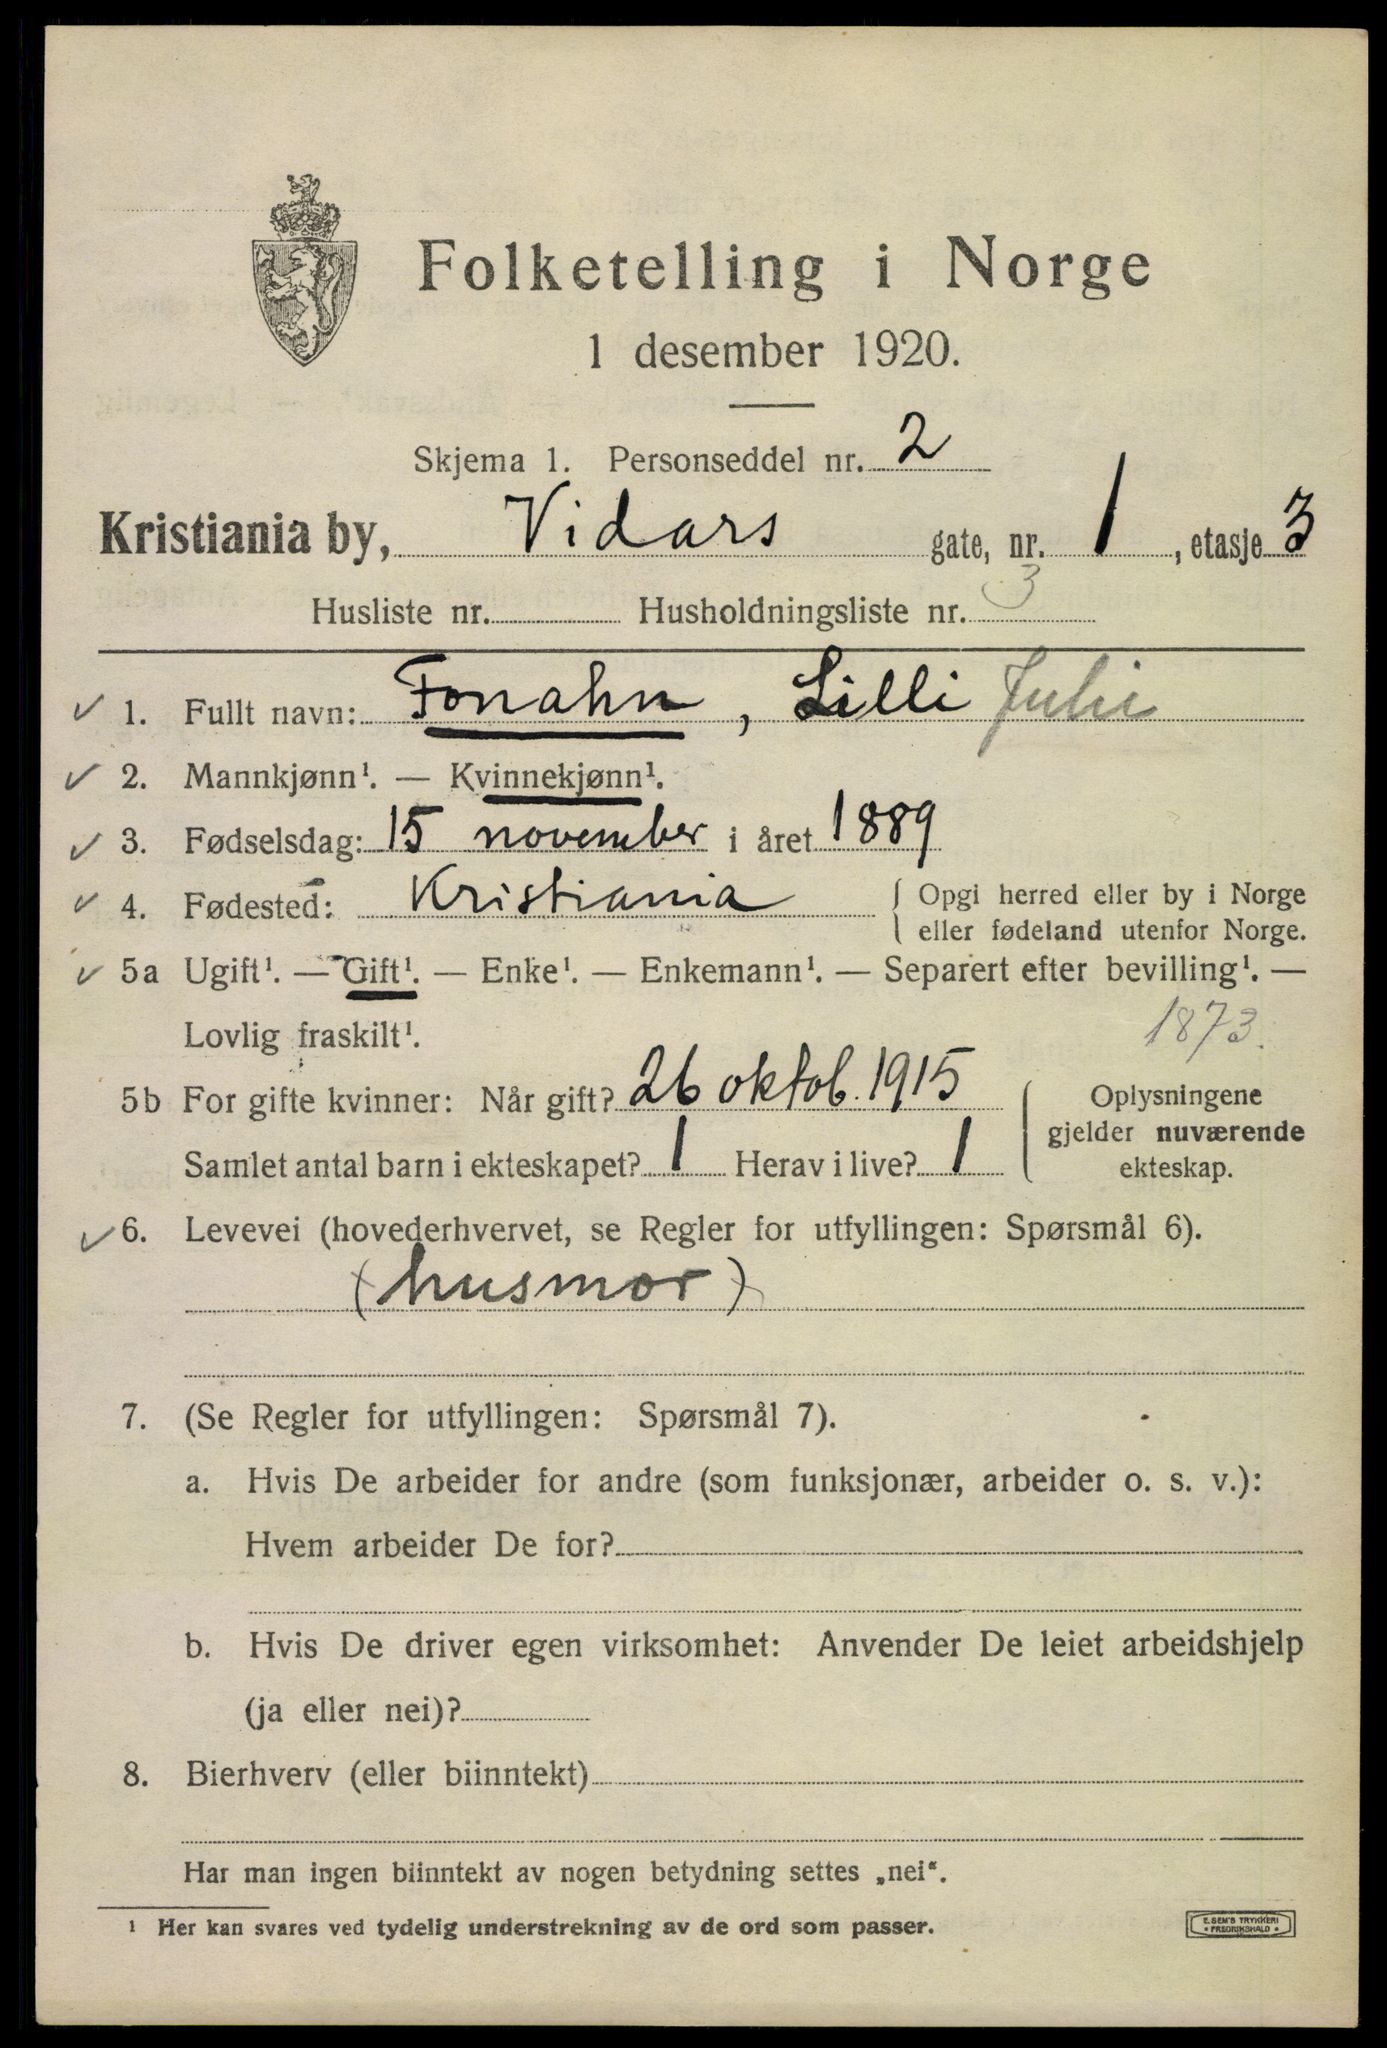 Folketelling i Norge
1 desember 1920.
Skjema 1. Personseddel nr. 2
Kristiania by, Vidars gate, nr. 1, etasje 3
Husliste nr. Husholdningsliste nr. 3
1. Fullt navn: Fonahn, Lilli Julie
2. Mannkjønn¹. — Kvinnekjønn¹.
3. Fødselsdag: 15 november i året 1889
4. Fødested: Kristiania { Opgi herred eller by i Norge
eller fødeland utenfor Norge.
5a Ugift¹. — Gift¹. — Enke¹. — Enkemann¹. — Separert efter bevilling¹. —
Lovlig fraskilt¹. 1873.
5b For gifte kvinner: Når gift? 26 oktob. 1915 { Oplysningene
gjelder nuværende
Samlet antal barn i ekteskapet? 1 Herav i live? 1 ekteskap.
6. Levevei (hovederhvervet, se Regler for utfyllingen: Spørsmål 6).
(husmor)
7. (Se Regler for utfyllingen: Spørsmål 7).
a. Hvis De arbeider for andre (som funksjonær, arbeider o. s. v.):
Hvem arbeider De for?
b. Hvis De driver egen virksomhet: Anvender De leiet arbeidshjelp
(ja eller nei)?
8. Bierhverv (eller biinntekt)
Har man ingen biinntekt av nogen betydning settes „nei“.
¹ Her kan svares ved tydelig understrekning av de ord som passer.
E. SEM'S TRYKKERI
• FREDRIKSHALD •